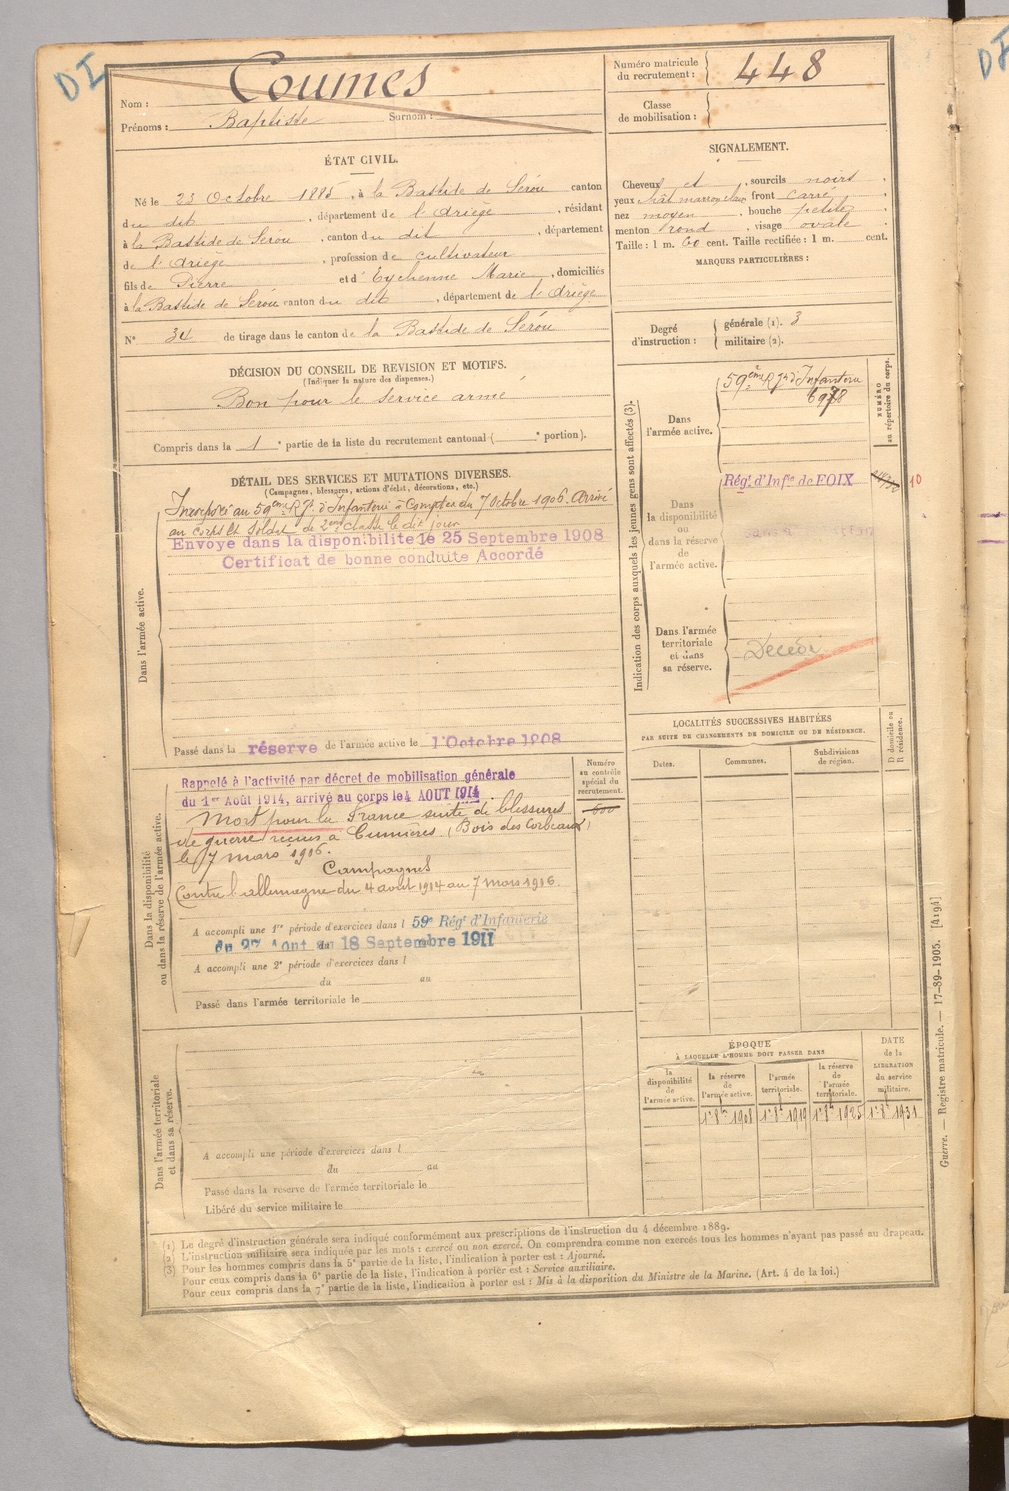 DI
Nom : Coumes
Prénoms : Baptiste Surnom :
Numéro matricule
du recrutement : 448
Classe
de mobilisation :
ÉTAT CIVIL.
Né le 23 Octobre 1885, à la Bastide de Sérou canton
du dit, département de l'Ariège, résidant
à la Bastide de Sérou, canton du dit, département
de l'Ariège, profession de cultivateur
fils de Pierre et d'Eychenne Marie, domiciliés
à la Bastide de Sérou canton du dit, département de l'Ariège
N° 34 de tirage dans le canton de la Bastide de Sérou
SIGNALEMENT.
Cheveux et, sourcils noirs,
yeux chât marron clair front carré,
nez moyen, bouche petite,
menton rond, visage ovale.
Taille : 1 m. 60 cent. Taille rectifiée : 1 m. cent.
MARQUES PARTICULIÈRES :
Degré
d'instruction :
générale (1). 3
militaire (2).
DÉCISION DU CONSEIL DE REVISION ET MOTIFS.
(Indiquer la nature des dispenses.)
Bon pour le service armé
Compris dans la 1e partie de la liste du recrutement cantonal ( e portion).
DÉTAIL DES SERVICES ET MUTATIONS DIVERSES.
(Campagnes, blessures, actions d'éclat, décorations, etc.)
Dans l'armée active.
Incorporé au 59eme Rgt d'Infanterie à Compter du 7 Octobre 1906. Arrivé
au corps et soldat de 2eme classe le dit jour
Envoyé dans la disponibilité le 25 Septembre 1908
Certificat de bonne conduite Accordé
Passé dans la réserve de l'armée active le 1 Octobre 1908
Indication des corps auxquels les jeunes gens sont affectés (3).
NUMÉRO
au répertoire du corps.
Dans
l'armée active.
59eme Rgt d'Infanterie
6978
Dans
la disponibilité
ou
dans la réserve
de
l'armée active.
Régt d'Infie de FOIX
10
Dans l'armée
territoriale
et dans
sa réserve.
Décédé
LOCALITÉS SUCCESSIVES HABITÉES
PAR SUITE DE CHANGEMENTS DE DOMICILE OU DE RÉSIDENCE.
D domicile ou
R résidence.
Dates.
Communes.
Subdivisions
de région.
Numéro
au contrôle
spécial du
recrutement.
Dans la disponibilité
ou dans la réserve de l'armée active.
Rappelé à l'activité par décret de mobilisation générale
du 1er Août 1914, arrivé au corps le 4 AOUT 1914
Mort pour la France suite de blessures
de guerre reçues à Cumières (Bois des Corbeaux)
le 7 mars 1916.
Campagnes
Contre l'allemagne du 4 août 1914 au 7 mars 1916.
A accompli une 1re période d'exercices dans l 59e Régt d'Infanterie
du 27 Aout au 18 Septembre 1911
A accompli une 2e période d'exercices dans l
du au
Passé dans l'armée territoriale le
Dans l'armée territoriale
et dans sa réserve.
A accompli une période d'exercices dans l
du au
Passé dans la réserve de l'armée territoriale le
Libéré du service militaire le
ÉPOQUE
À LAQUELLE L'HOMME DOIT PASSER DANS
la
disponibilité
de
l'armée active.
la réserve
de
l'armée active.
l'armée
territoriale.
la réserve
de
l'armée
territoriale.
DATE
de la
LIBÉRATION
du service
militaire.
1r 8bre 1908
1r 8bre 1919
1r 8bre 1925
1r 8bre 1931
Guerre. — Registre matricule. — 17-89-1905. [4194]
(1) Le degré d'instruction générale sera indiqué conformément aux prescriptions de l'instruction du 4 décembre 1889.
(2) L'instruction militaire sera indiquée par les mots : exercé ou non exercé. On comprendra comme non exercés tous les hommes n'ayant pas passé au drapeau.
(3) Pour les hommes compris dans la 5e partie de la liste, l'indication à porter est : Ajourné.
Pour ceux compris dans la 6e partie de la liste, l'indication à porter est : Service auxiliaire.
Pour ceux compris dans la 7e partie de la liste, l'indication à porter est : Mis à la disposition du Ministre de la Marine. (Art. 4 de la loi.)